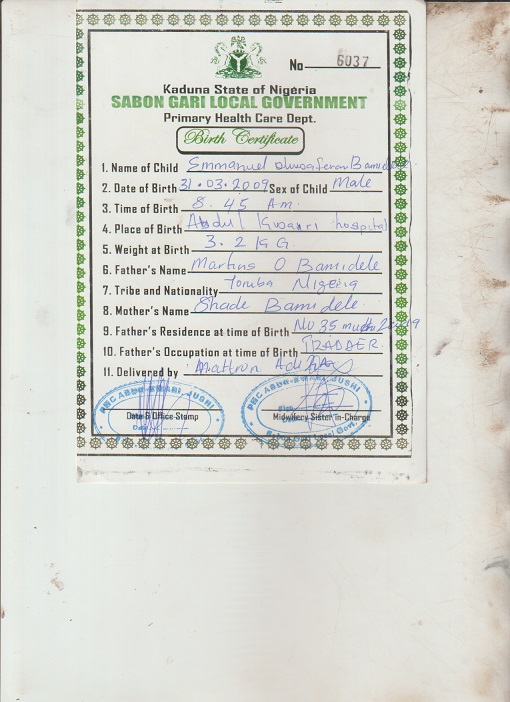 No 6037
Kaduna State of Nigeria
SABON GARI LOCAL GOVERNMENT
Primary Health Care Dept.
Birth Certificate
1. Name of Child Emmanuel oluwaferan Bamidele
2. Date of Birth 31.03.2009 Sex of Child Male
3. Time of Birth 8.45 Am.
4. Place of Birth hospital
5. Weight at Birth 3.2 KG
6. Father's Name Martins O Bamidele
7. Tribe and Nationality Yoruba Nigeria
8. Mother's Name Shade Bamidele.
9. Father's Residence at time of Birth No 35
10. Father's Occupation at time of Birth TRADDER
11. Delivered by Mattron
Date & Office Stamp
Midwifery Sister in-Charge